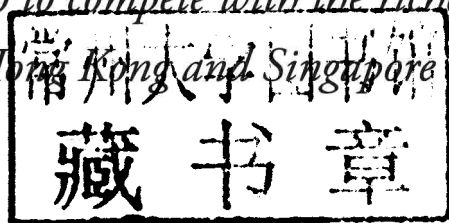 to compete with the
Hong Kong and Singapore
常州大学图书馆
藏书章